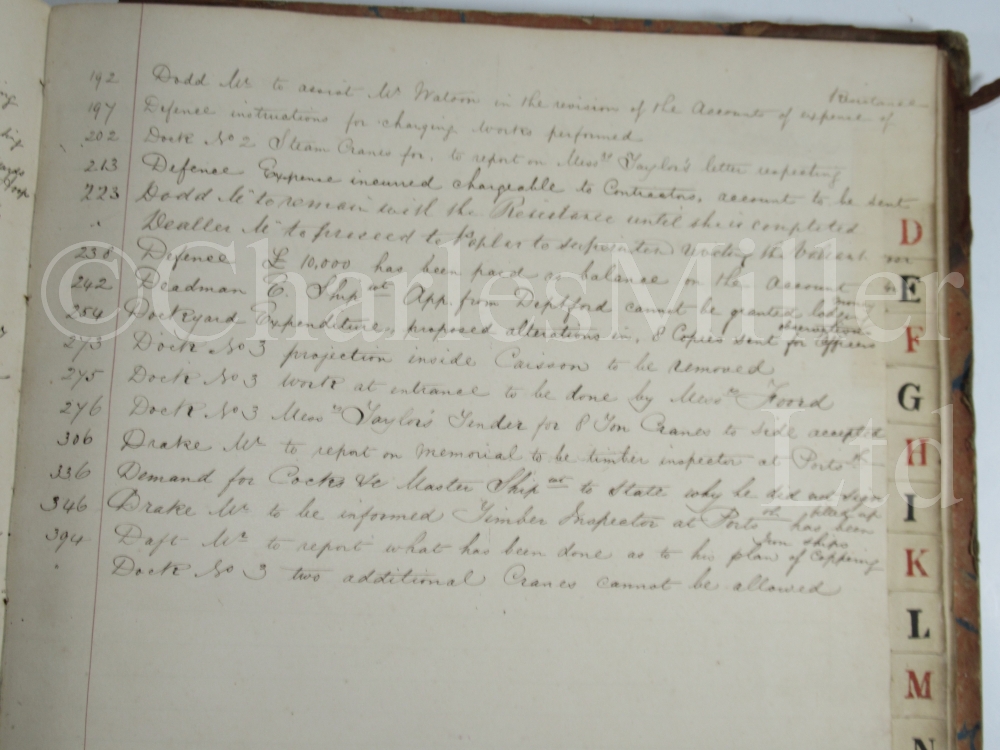 192 Dodd Mr to assist Mr Watson in the revision of the Accounts of expense of Resistance
197 Defence instructions for charging works performed
202 Dock No 2 Steam Cranes for, to report on Messrs Taylor's letter respecting
213 Defence Expense incurred chargeable to Contractors, account to be sent
223 Dodd Mr to remain with the Resistance until she is completed
" Mr to proceed to Poplar to the
230 Defence £10,000 has been paid as balance on the account
242 Deadman E. Shipwt App. from Deptford cannot be granted
254 Dockyard Expenditure, proposed alterations in, 8 Copies sent for officers observations
273 Dock No 3 projection inside Caisson to be removed
275 Dock No 3 work at entrance to be done by Messrs Foord
276 Dock No 3 Messrs Taylor's Tender for 8 Ton Cranes to side accepted
306 Drake Mr to report on memorial to be timber inspector at Portsth
336 Demand for Cocks &c Master Shipwt to state why he did not sign
346 Drake Mr to be informed Timber Inspector at Portsoh has been filled up
394 Daft Mr to report what has been done as to his plan of Coppering Iron ships
" Dock No 3 two additional Cranes cannot be allowed
D
E
F
G
H
I
K
L
M
N
©Charles Miller
Ltd